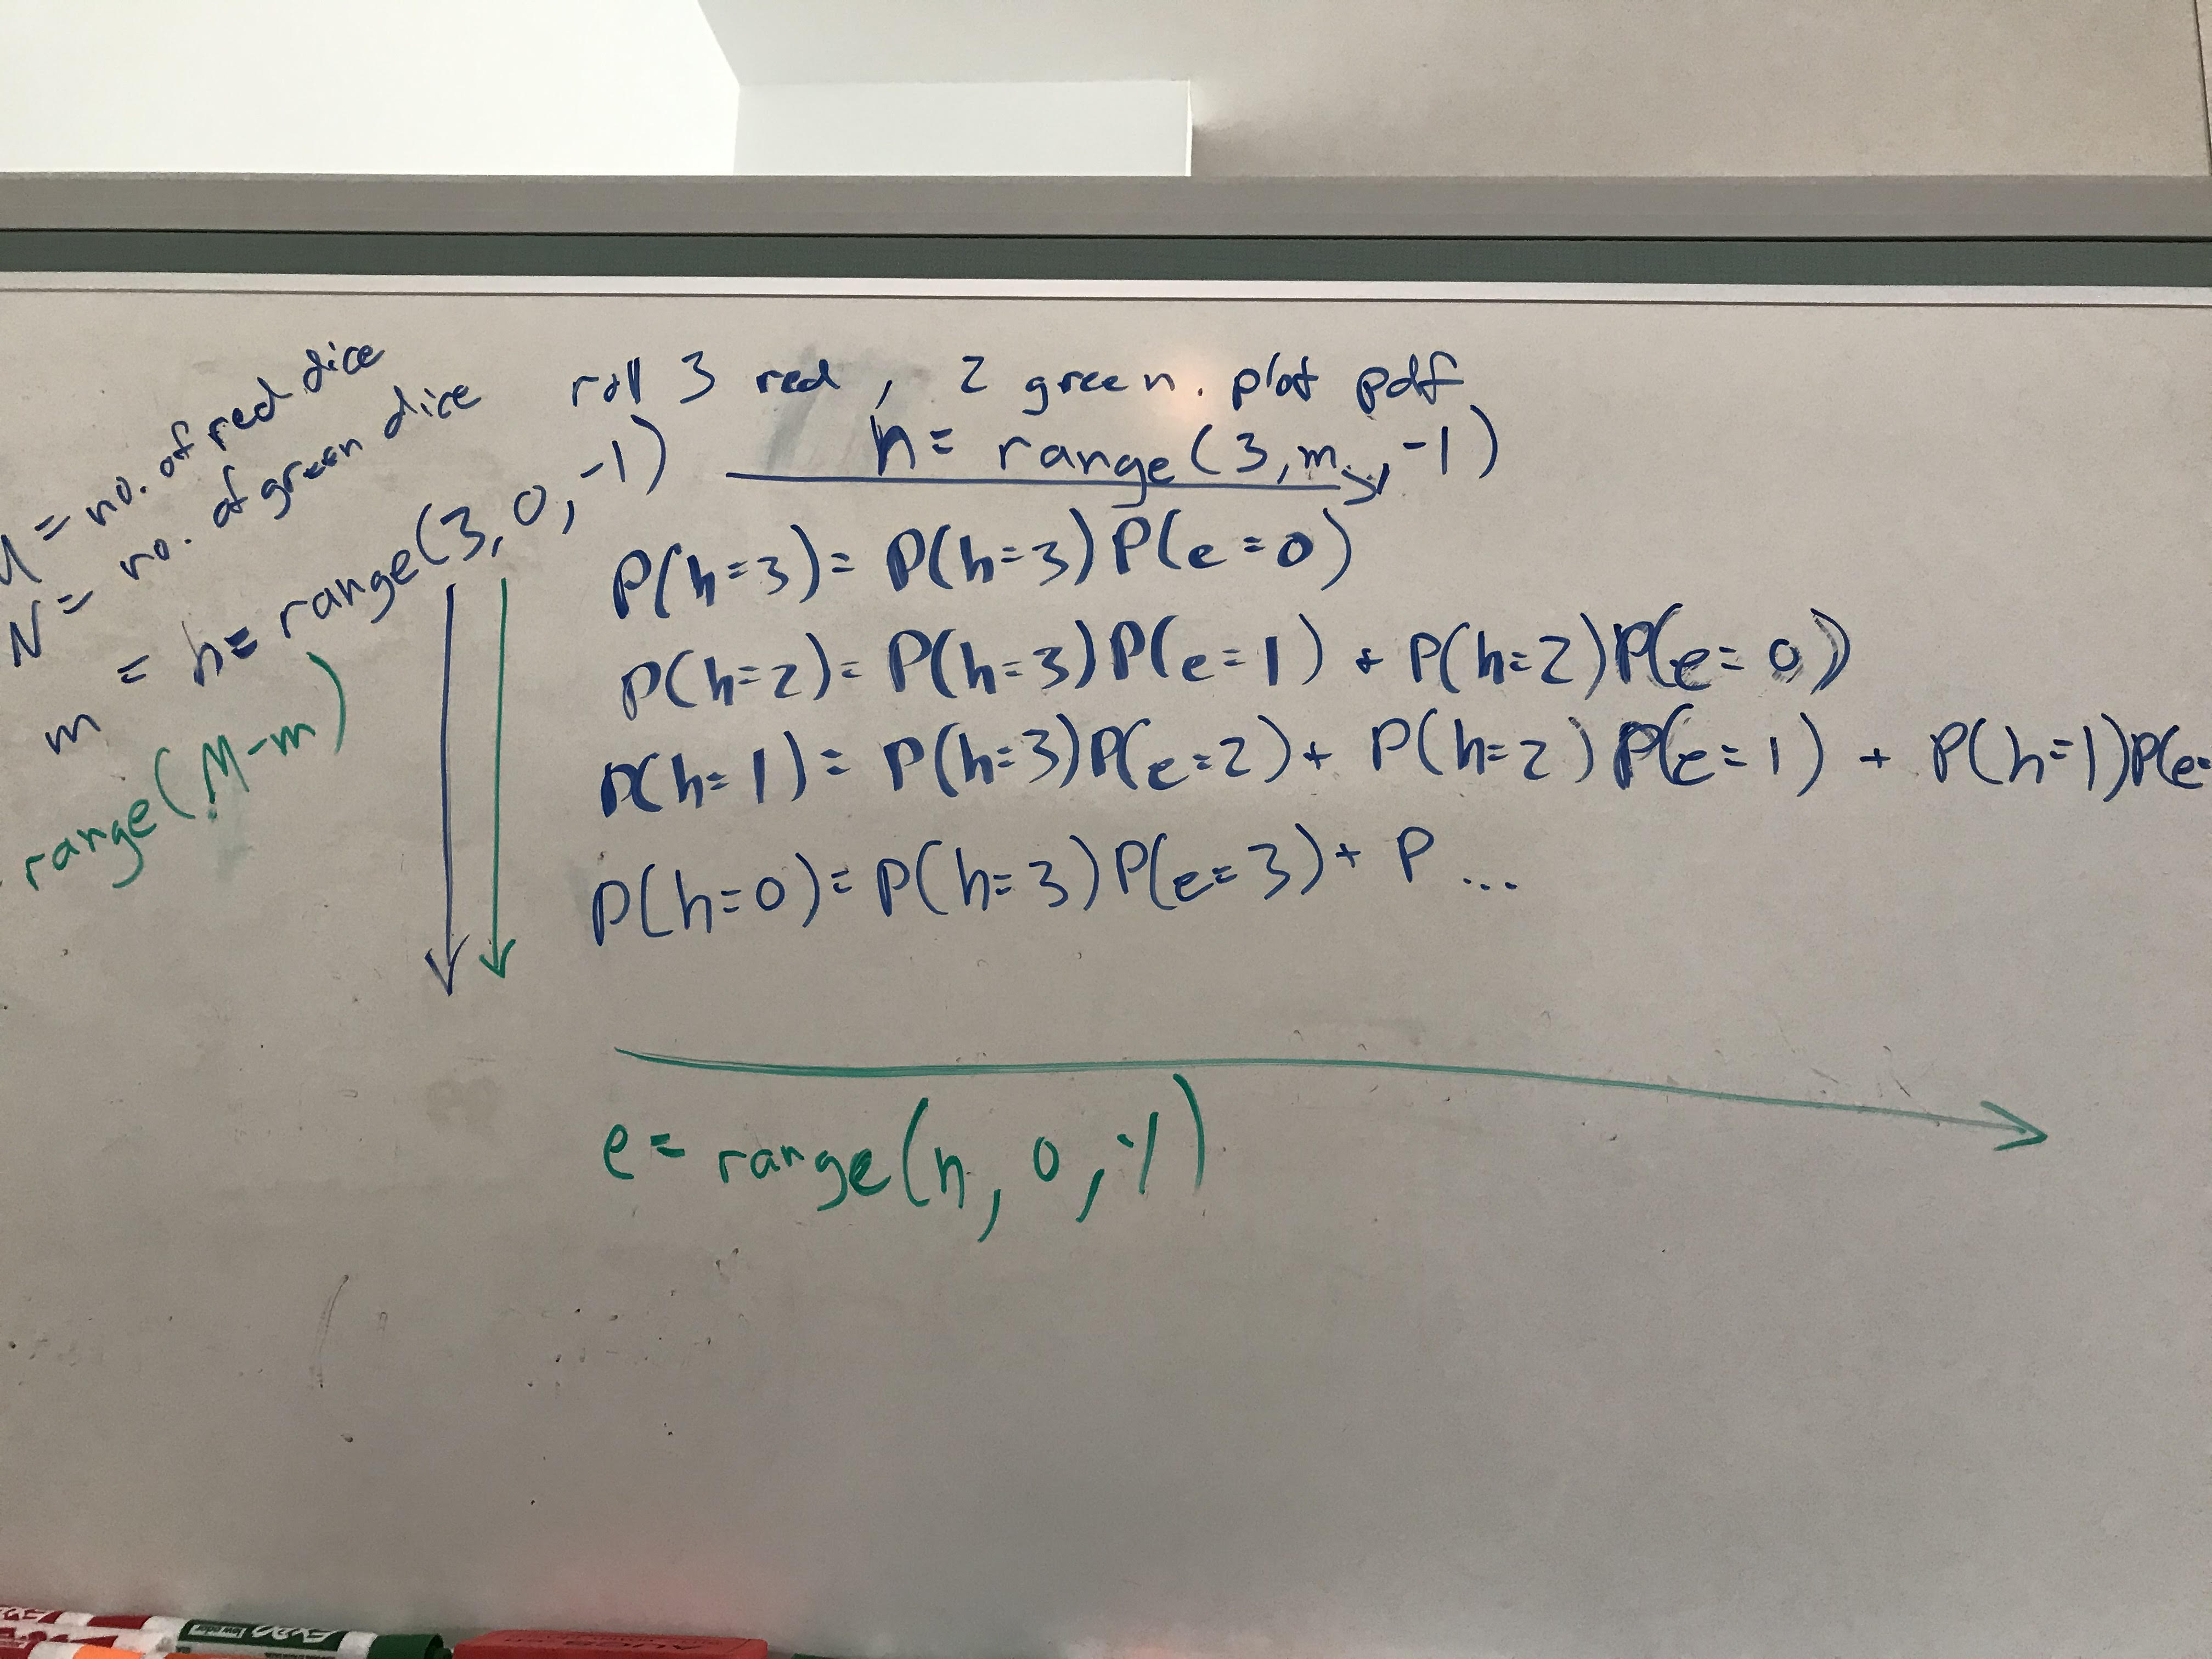 = no. of red dice
N = no. of green dice
m = h = range(3, 0, -1)
range(M-m)
roll 3 red, 2 green. plot pdf
h = range(3, m, -1)
P(h=3) = P(h=3)P(e=0)
P(h=2) = P(h=3)P(e=1) + P(h=2)P(e=0)
P(h=1) = P(h=3)P(e=2) + P(h=2)P(e=1) + P(h=1)P(e=
P(h=0) = P(h=3)P(e=3) + P ...
e = range(n, 0, -1)
EXPO